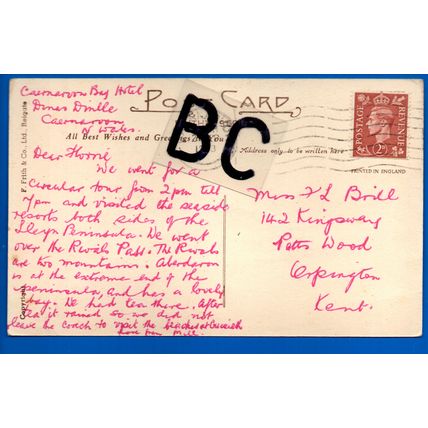 Caernarvon Bay Hotel
Dinas Dinlle
Caernarvon
N Wales.
POST CARD
BC
All Best Wishes and Greetings to You
Address only to be written here
POSTAGE
REVENUE
2D
PRINTED IN ENGLAND
F. Frith & Co., Ltd., Reigate
Copyright
Dear Florrie
We went for a
circular tour from 2pm till
7pm and visited the seaside
resorts both sides of the
Lleyn Peninsula. We went
over the Rivals Pass. The Rivals
are two mountains. Aberdaron
is at the extreme end of the
peninsula, and has a lovely
bay. We had tea there. After
tea it rained so we did not
leave the coach to visit the beaches at Criccieth
Love from Mill.
Miss F L Brill
142 Kingsway
Petts Wood
Orpington
Kent.